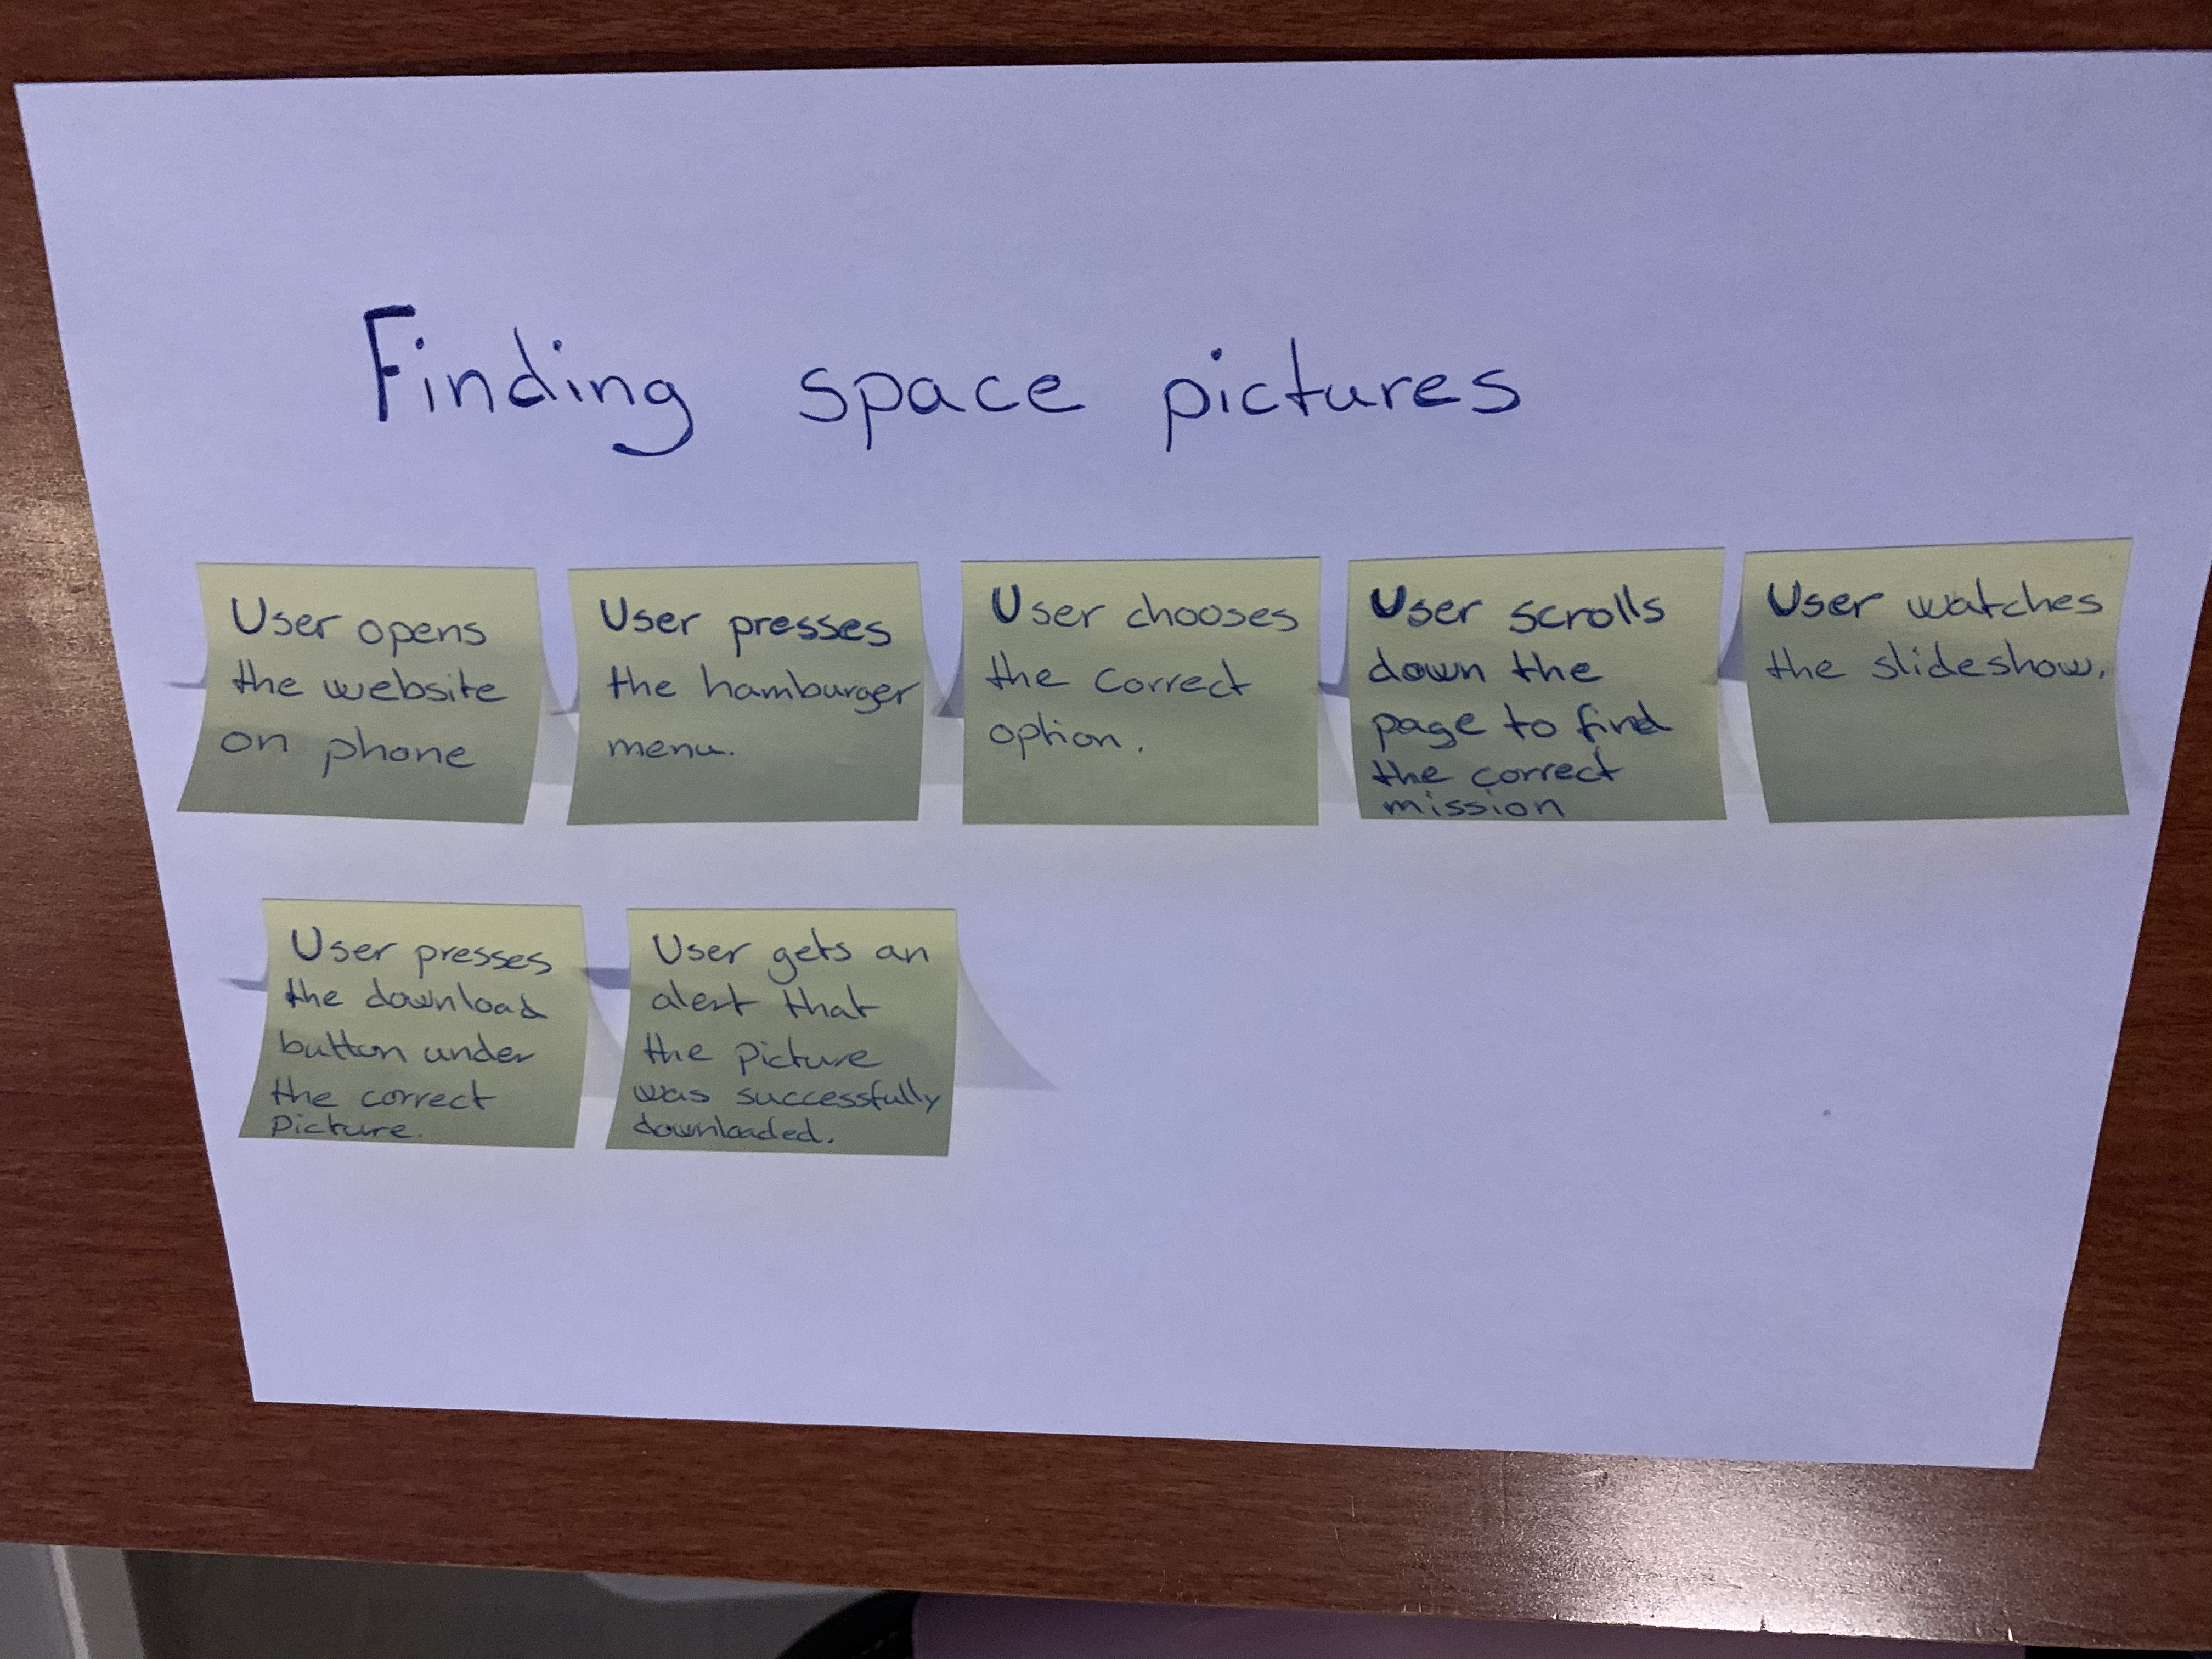 Finding space pictures
User opens
the website
on phone
User presses
the hamburger
menu.
User chooses
the correct
option.
User scrolls
down the
page to find
the correct
mission
User watches
the slideshow.
User presses
the download
button under
the correct
Picture.
User gets an
alert that
the picture
was successfully
downloaded.